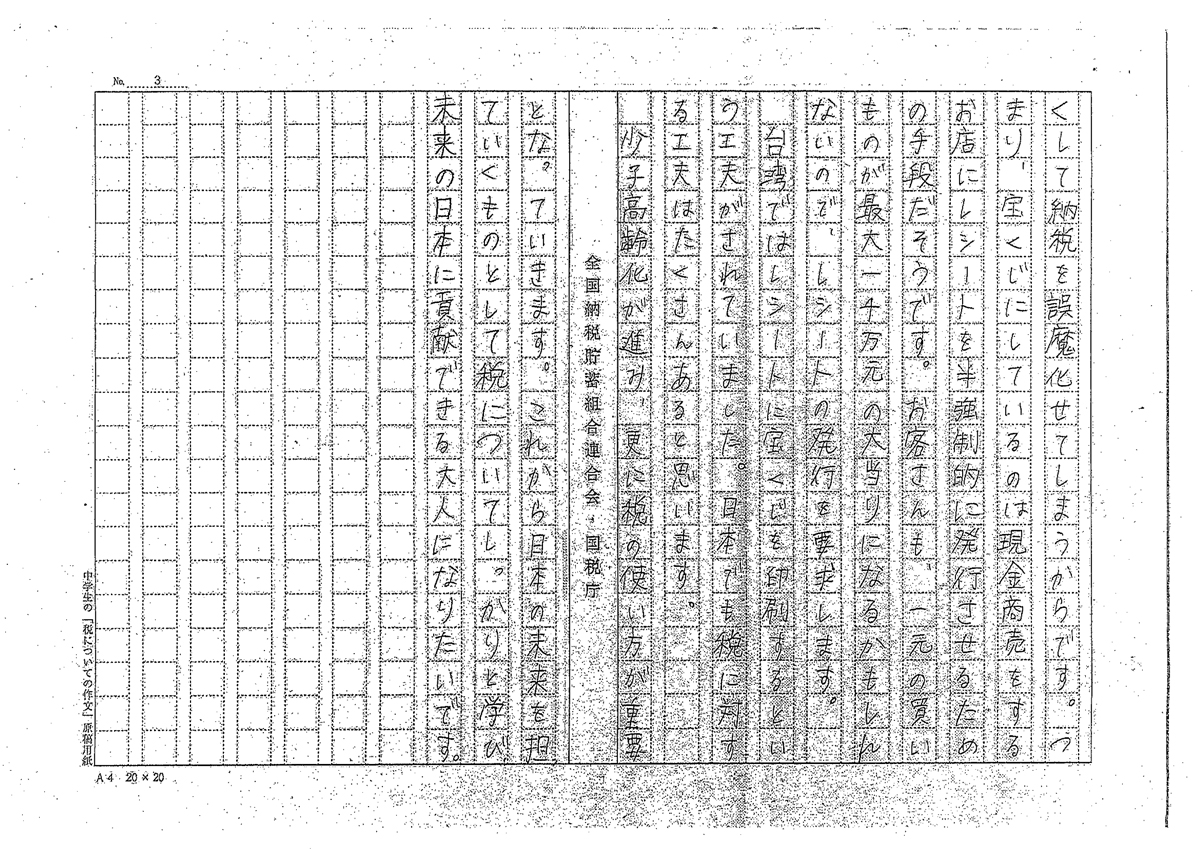 No. 3
くして納税を誤魔化せてしまうからです。つ
まり、宝くじにしているのは現金商売をする
お店にレシートを半強制的に発行させるため
の手段だそうです。お客さんも、一元の買い
ものが最大一千万元の大当りになるかもしれ
ないので、レシートの発行を要求します。
台湾ではレシートに宝くじを印刷するとい
う工夫がされていました。日本でも税に対す
る工夫はたくさんあると思います。
少子高齢化が進み、更に税の使い方が重要
全国納税貯蓄組合連合会・国税庁
となっていきます。これから日本の未来を担
っていくものとして税についてしっかりと学び、
未来の日本に貢献できる大人になりたいです。
中学生の「税についての作文」原稿用紙
A4 20×20